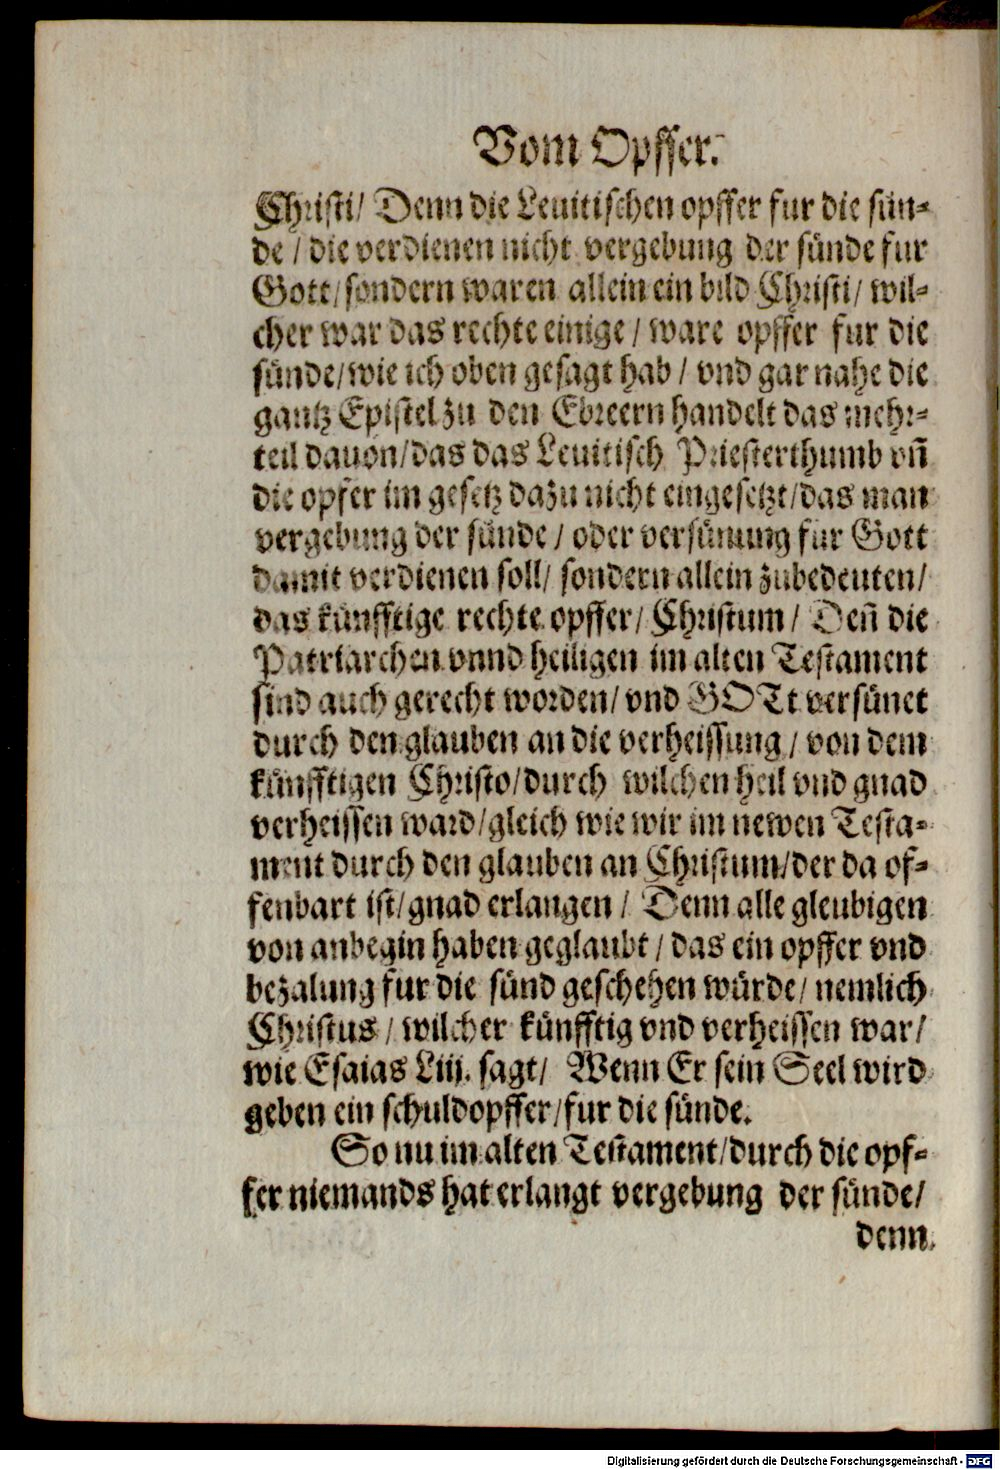 Vom Opffer.
Christi/ Denn die Leuitischen opffer fur die sün-
de / die verdienen nicht vergebung der sünde fur
Gott/ sondern waren allein ein bild Christi/ wil-
cher war das rechte einige / ware opffer fur die
sünde/wie ich oben gesagt hab / vnd gar nahe die
gantz Epistel zu den Ebreern handelt das mehr-
teil dauon/das das Leuitisch Priesterthumb vñ
die opfer im gesetz dazu nicht eingesetzt/das man
vergebung der sünde / oder versünung fur Gott
damit verdienen soll/ sondern allein zubedeuten/
das künfftige rechte opffer/ Christum / Deñ die
Patriarchen vnnd heiligen im alten Testament
sind auch gerecht worden/ vnd GOTt versünet
durch den glauben an die verheissung / von dem
künfftigen Christo/durch wilchen heil vnd gnad
verheissen ward/gleich wie wir im newen Testa-
ment durch den glauben an Christum/der da of-
fenbart ist/gnad erlangen / Denn alle gleubigen
von anbegin haben geglaubt / das ein opffer vnd
bezalung fur die sünd geschehen würde/ nemlich
Christus / wilcher künfftig vnd verheissen war/
wie Esaias Liij. sagt/ Wenn Er sein Seel wird
geben ein schuldopffer/fur die sünde.
So nu im alten Testament/durch die opf-
fer niemands hat erlangt vergebung der sünde/
denn
Digitalisierung gefördert durch die Deutsche Forschungsgemeinschaft - DFG